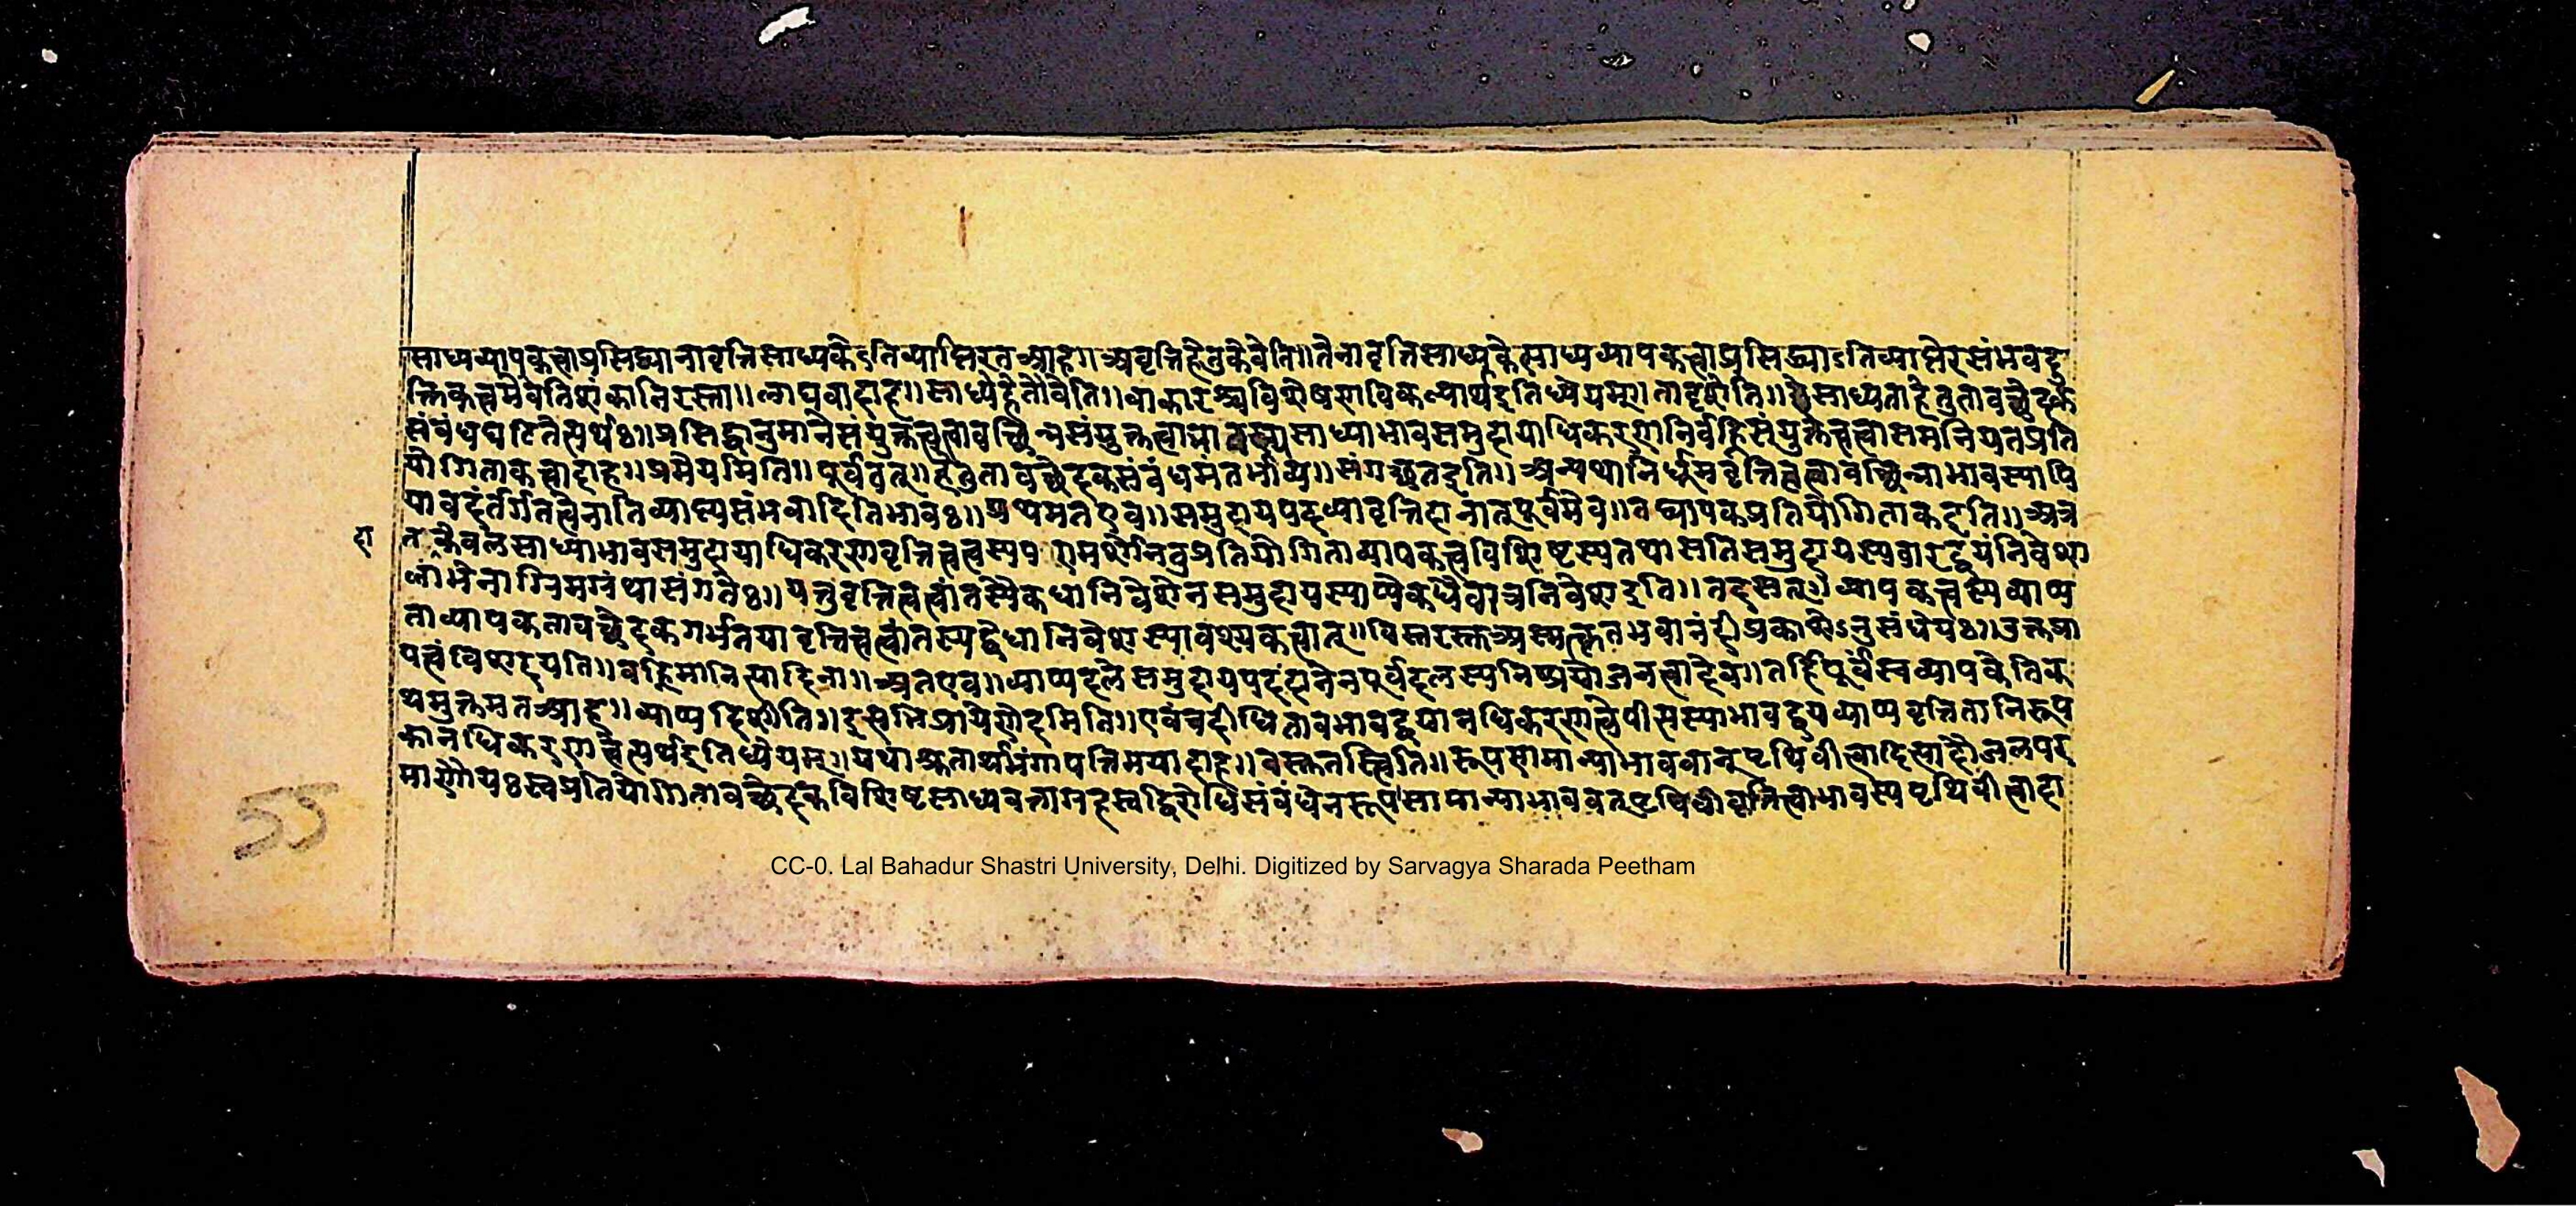 साध्यव्यापकत्वाप्रसिद्ध्यानावृत्तिसाध्यकेऽतिव्याप्तिरत आह॥ अवृत्तिहेतुकेवेति॥ तेनावृत्तिसाध्यकेसाध्यव्यापकत्वाप्रसिद्ध्याऽतिव्याप्तेरसंभवदु
क्तिकत्वमेवेतिशंकानिरस्ता॥ लाघवादाह॥ साध्येहेतौवेति॥ वाकारश्चविशेषसाविकल्पार्थइतिध्येयम्॥ तादृशेति॥ साध्यताहेतुतावच्छेदक
संबंधघटितेत्यर्थः॥ प्रसिद्धानुमानेसंयुक्तत्वत्वावच्छिन्नसंयुक्तत्वाभावस्यसाध्याभावसमुदायाधिकरणनिर्वह्निसंयुक्तत्वत्वासमनियतप्रति
योगिताकत्वादाह॥ प्रमेयमिति॥ पूर्ववत्॥ हेतुतावच्छेदकसंबंधमंतर्भाव्य॥ संगच्छतइति॥ अन्यथानिर्धूमवृत्तित्वत्वावच्छिन्नाभावस्यापि
यावदंतर्गतत्वेनातिव्याप्त्यसंभवादितिभावः॥ प्रथमतएव॥ समुदायपदव्यावृत्तिदानात्पूर्वमेव॥ तद्व्यापकप्रतियोगिताकइति॥ अत्र
दा
केवलसाध्याभावसमुदायाधिकरणावृत्तित्वत्वस्य प्रतियोगिताव्यापकत्वविशिष्टस्यतथासतिसमुदायस्यवारद्वयंनिवेश
लाभेनाग्रिमग्रंथासंगतेः॥ यत्तुवृत्तित्वत्वांतस्यैकधानिवेशेनसमुदायस्याप्येकधैवात्रनिवेशइति॥ तदसत् व्यापकत्वस्यव्याप्य
ताव्यापकतावच्छेदकगर्भतयावृत्तित्वत्वांतस्यद्वेधानिवेशस्यावश्यकत्वात्॥ विस्तरस्तुअस्मत्कृत प्रकाशेऽनुसंधेयः॥ उक्तप्रा
यत्वंविशदयति॥ वह्निमानित्यादिना॥ अतएव॥ व्याप्यदलेसमुदायपदंदानेनपूर्वदलस्यनिष्प्रयोजनत्वादेव॥ तर्हिपूर्वंस्वव्यापकेतिक
थमुक्तमतआह॥ व्याप्यदिशेति॥ इत्यभिप्रायेणेदमिति॥ एवंच तावभावद्वयानधिकरणत्वेपीत्यस्याभावद्वयव्याप्यवृत्तितानिरूप
कानधिकरणत्वेत्यर्थइतिध्येयम्॥ यथाश्रुतार्थभंगापत्तिभयादाह॥ वस्तुतस्त्विति॥ रूपसामान्याभाववान्पृथिवीत्वादित्यादौजलपर
माणौयःस्वप्रतियोगितावच्छेदकविशिष्टसाध्यवत्ताग्रहस्वद्विरोधिसंबंधेनरूपसामान्याभाववत्पृथिवीवृत्तित्वाभावस्यपृथिवीत्वादा
55
CC-0. Lal Bahadur Shastri University, Delhi. Digitized by Sarvagya Sharada Peetham